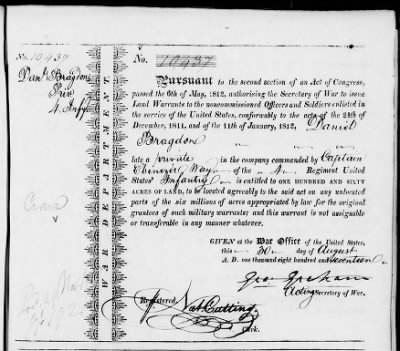 No. 10437
Danl. Bragdon
Priv
4. Infy
WAR DEPARTMENT.
No. 10437
Pursuant to the second section of an Act of Congress,
passed the 6th of May, 1812, authorising the Secretary of War to issue
Land Warrants to the noncommissioned Officers and Soldiers enlisted in
the service of the United States, conformably to the acts of the 24th of
December, 1811, and of the 11th of January, 1812, Daniel
Bragdon
late a private in the company commanded by Captain
Ebenezer Way of the 4 Regiment United
States' Infantry is entitled to ONE HUNDRED AND SIXTY
ACRES OF LAND, to be located agreeably to the said act on any unlocated
parts of the six millions of acres appropriated by law for the original
grantees of such military warrants; and this warrant is not assignable
or transferable in any manner whatever.
GIVEN at the War Office of the United States,
this 30 day of August
A. D. one thousand eight hundred and seventeen
Geo. Graham
Acting Secretary of War.
Registered,
Nat Cutting
Clerk.